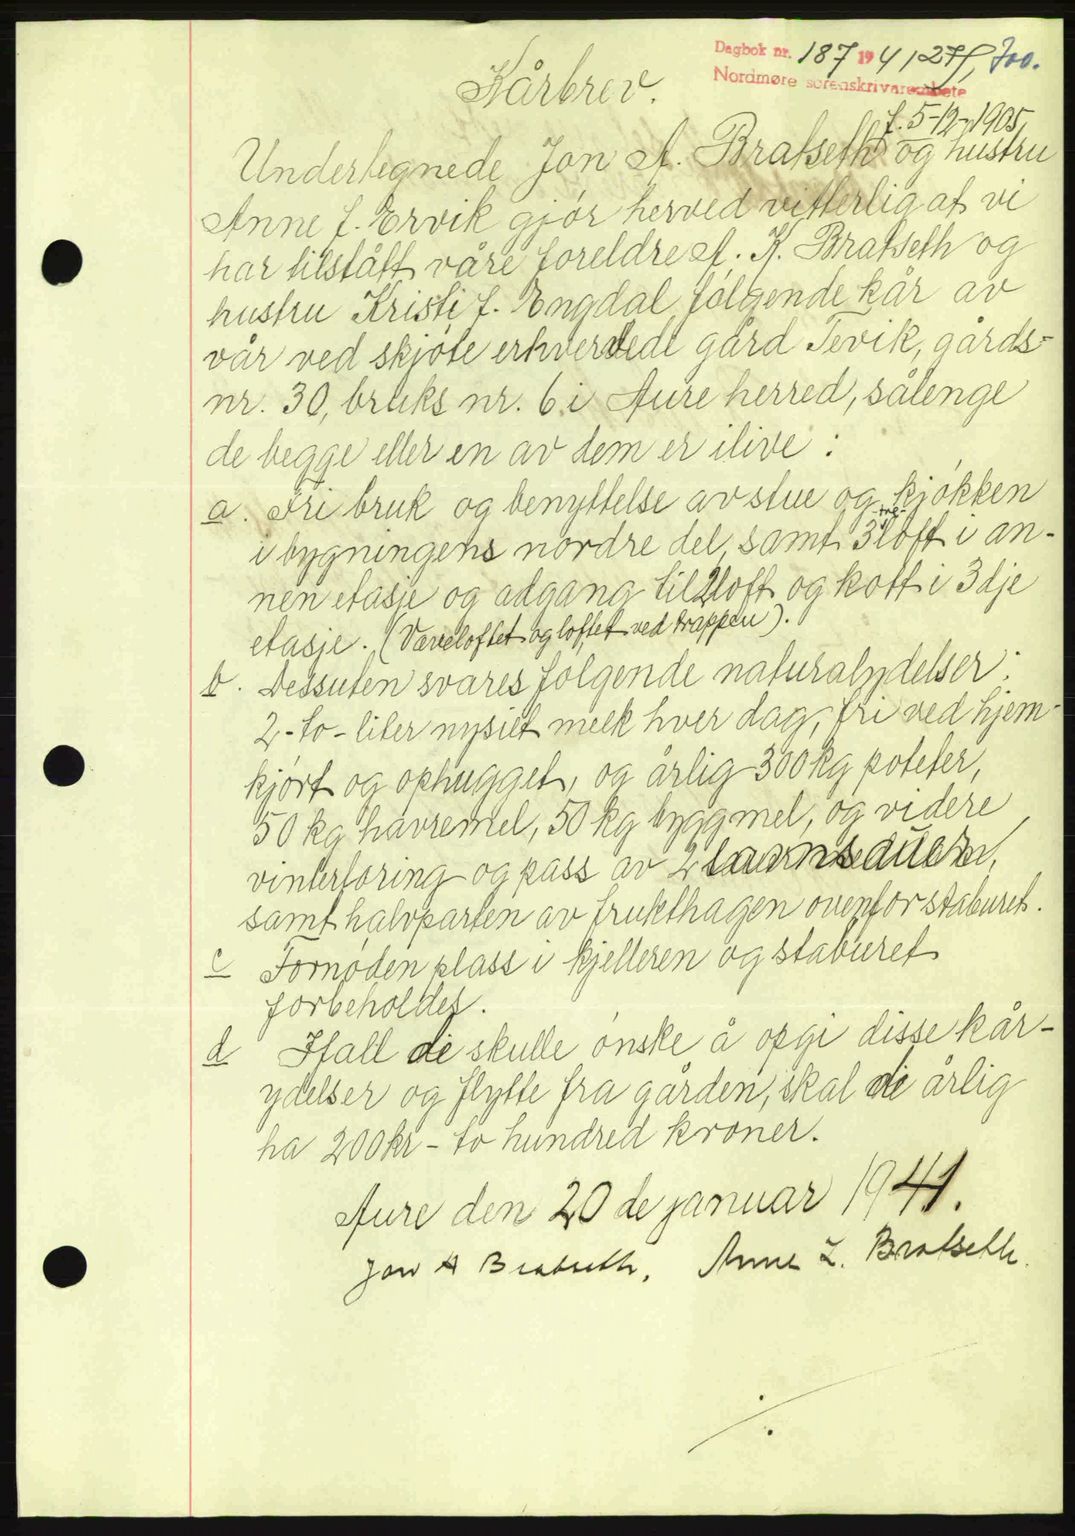 Dagbok nr. 187 1941 27/1, 700.
Nordmøre sorenskrivarembete
Kårbrev.
f. 5-12-1905,
Undertegnede Jon A. Bratseth og hustru
Anne f. Ervik gjør herved vitterlig at vi
har tilstått våre foreldre A. K. Bratseth og
hustru Kristi f. Engdal følgende kår av
vår ved skjøte erhvervede gård Tevik, gårds-
nr. 30, bruks nr. 6 i Aure herred, sålenge
de begge eller en av dem er ilive :
a. Fri bruk og benyttelse av stue og kjøkken
i bygningens nordre del, samt 3 -tre- loft i an-
nen etasje og adgang til 2 loft og kott i 3dje
etasje. (Væveloftet og loftet ved trappen).
b. Dessuten svares følgende naturalydelser:
2-to-liter nysilt melk hver dag, fri ved hjem-
kjørt og ophugget, og årlig 300 kg poteter,
50 kg havremel, 50 kg byggmel, og videre
vinterforing og pass av 2
samt halvparten av frukthagen ovenfor staburet.
c Fornøden plass i kjelleren og staburet
forbeholdes.
d Ifall de skulle ønske å opgi disse kår-
ydelser og flytte fra gården, skal de årlig
ha 200 kr - to hundred kroner.
Aure den 20 de januar 1941.
Jon A Bratseth, Anne L. Bratseth.